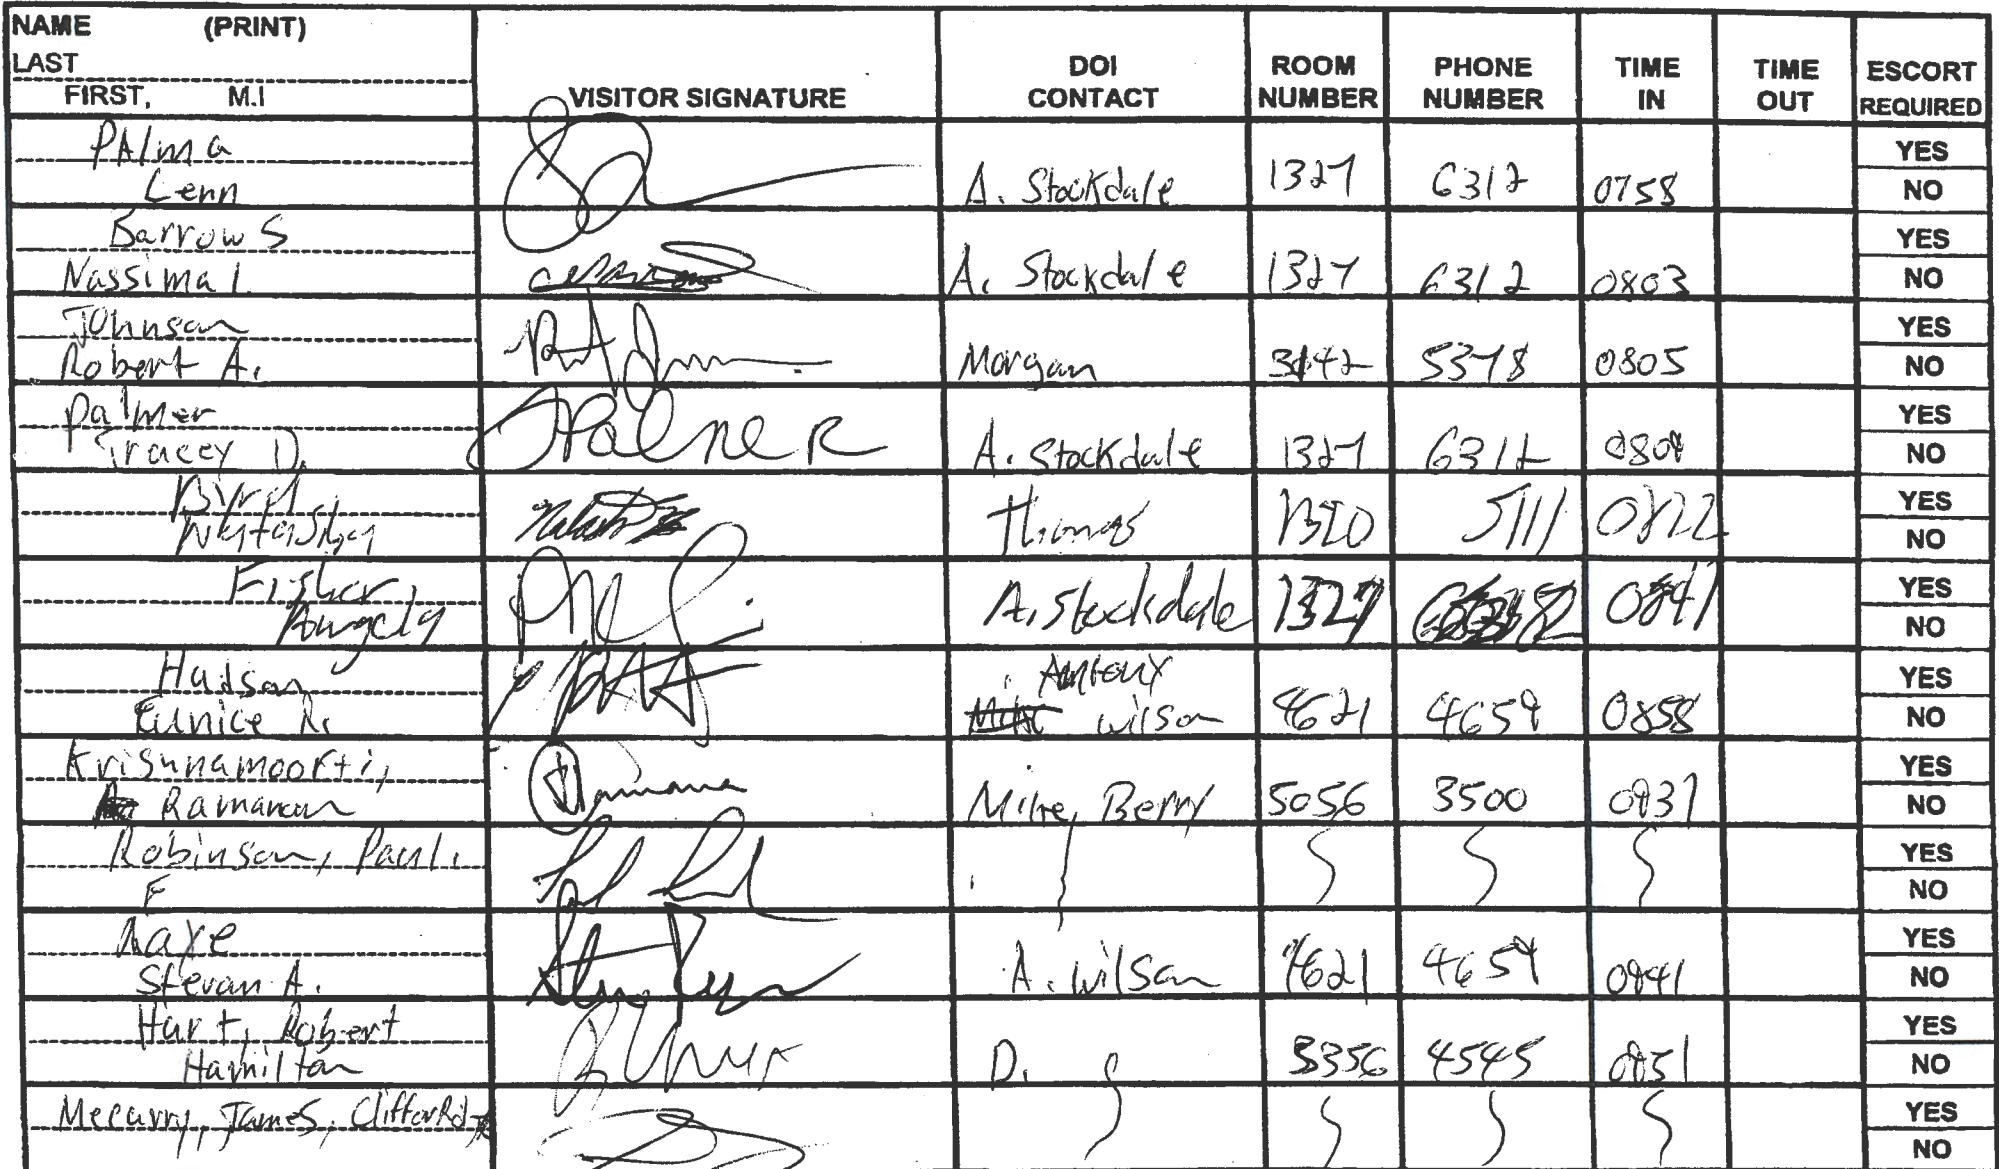 NAME (PRINT)
LAST
FIRST, M.I
VISITOR SIGNATURE
DOI CONTACT
ROOM NUMBER
PHONE NUMBER
TIME IN
TIME OUT
ESCORT REQUIRED
PAlma
Lenn A. Stockdale 1327 6312 0758
YES
NO
Barrows
Nassima I. A. Stockdale 1327 6312 0803
YES
NO
Johnson
Robert A. Morgan 3142 5378 0805
YES
NO
Palmer
Tracey D. A. Stockdale 1327 6312
YES
NO
Byrd
Natasha Thomas 5111 0822
YES
NO
Fisher,
Angela A. Stockdale 1327 0841
YES
NO
Hudson Antony
Eunice R. Wilson 4621 4659 0858
YES
NO
Krishnamoorti,
Ramanan Mike, Berry 5056 3500 0931
YES
NO
Robinson, Paul.
F
YES
NO
Raye
Stevan A. A. Wilson 4621 4659 0941
YES
NO
Hart, Robert
Hamilton D. 5356 4545 0951
YES
NO
James, Clifford
YES
NO